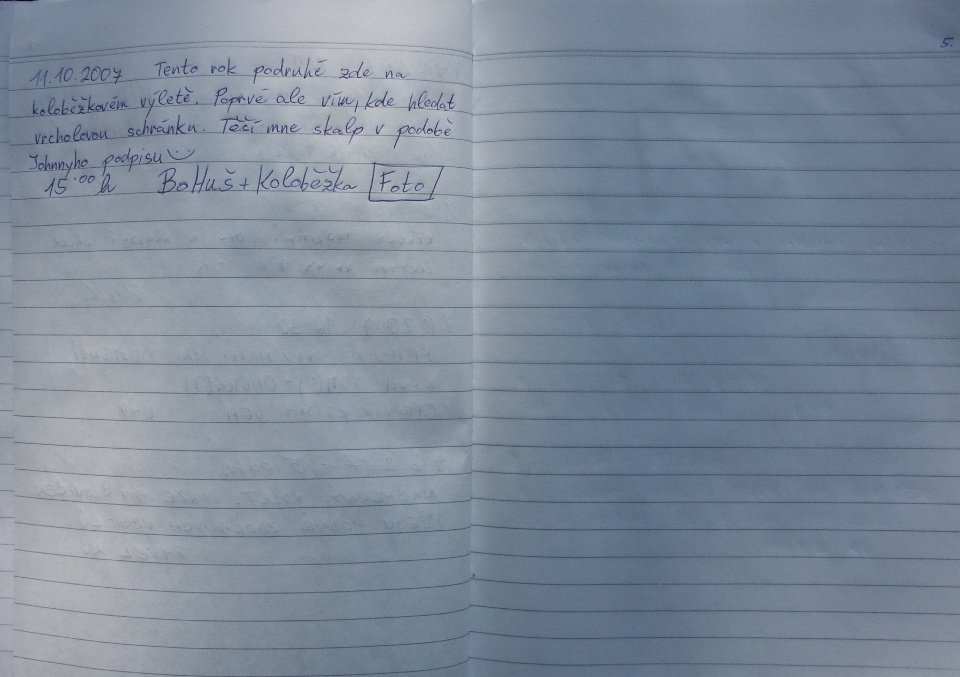 11.10.2007 Tento rok podruhé zde na
koloběžkovém výletě. Poprvé ale vím, kde hledat
vrcholovou schránku. Těší mne skalp v podobě
Johnnyho podpisu
15.00 h BoHuš + Koloběžka Foto
5.